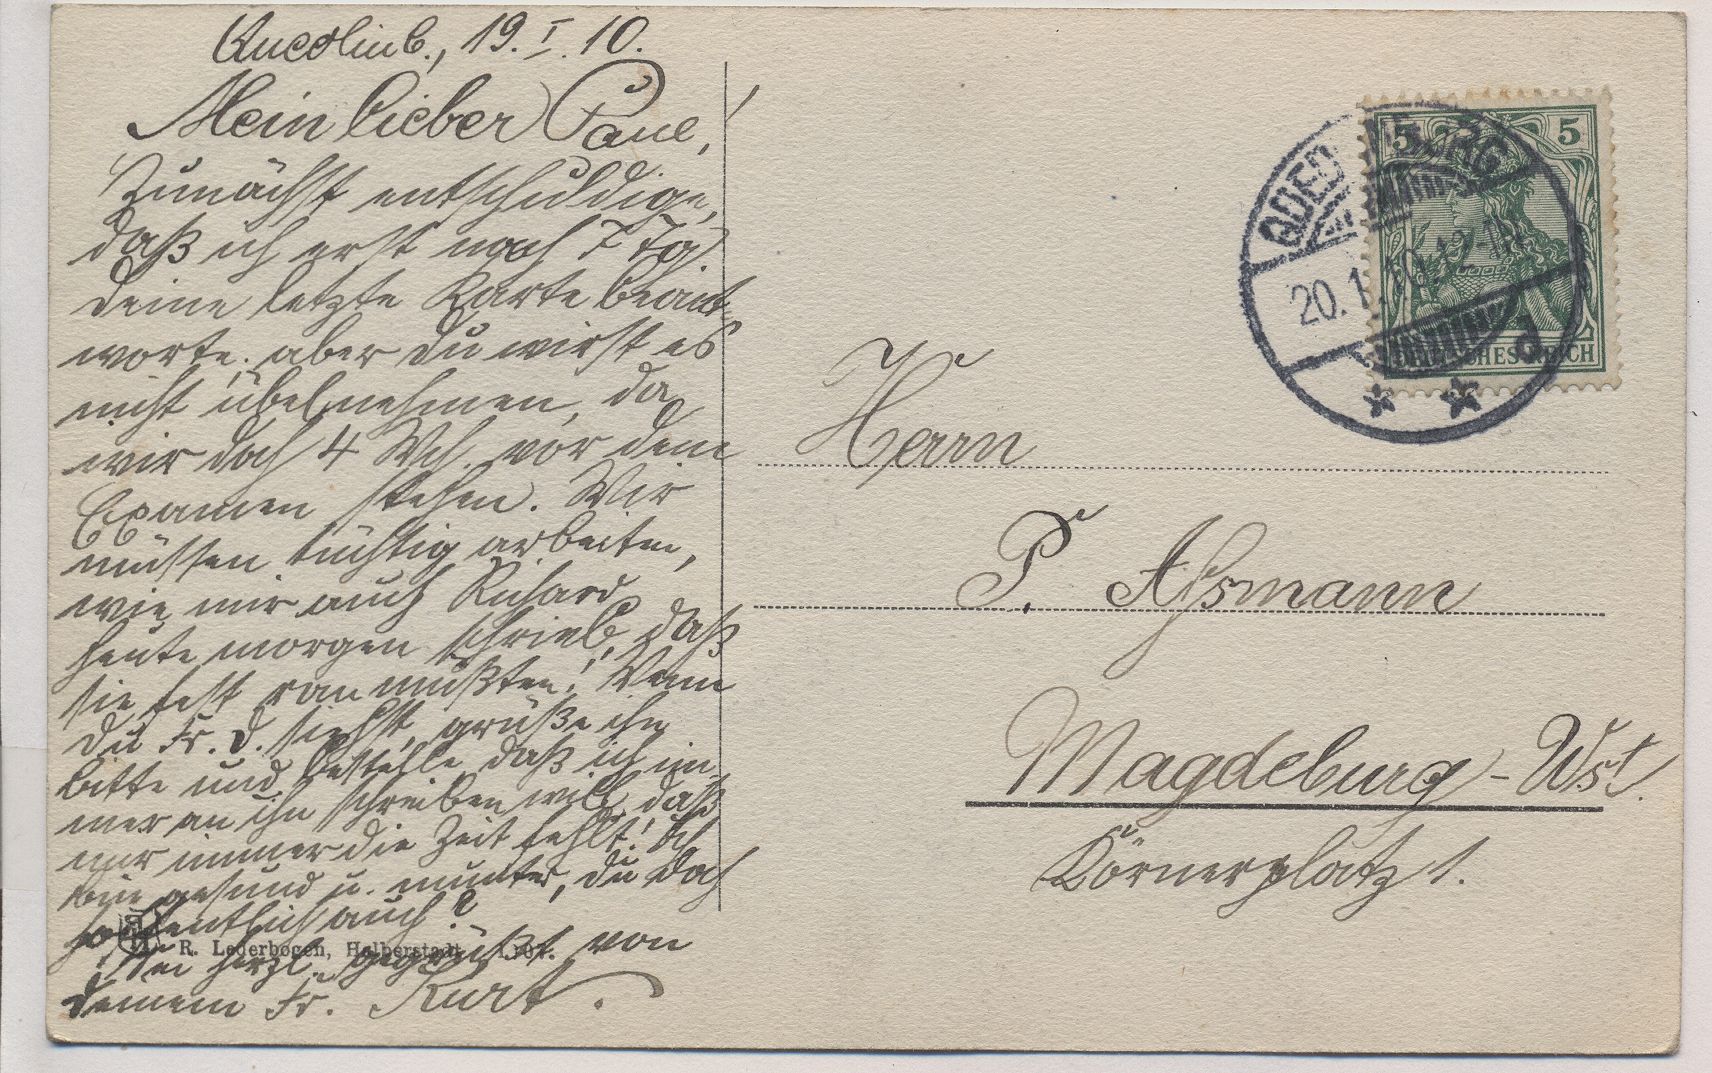 Quedlinb., 19.I.10.
Mein lieber Paul,
Zunächst entschuldige,
daß ich erst nach 7 Tg.
deine letzte Karte beant-
worte, aber du wirst es
nicht übelnehmen, da
wir doch 4 Wch. vor dem
Examen stehen. Wir
müssen tüchtig arbeiten,
wie mir auch Richard
heute morgen schrieb, daß
sie fest ran müßten! Wenn
du Fr. D. siehst, grüße ihn
bitte und bestelle, daß ich im-
mer an ihn schreiben will, daß
mir immer die Zeit fehlt! Ich
bin gesund u. munter, du doch
hoffentlich auch?
Sei herzl. gegrüßt von
deinem Fr. Kurt.
R. Lederbogen, Halberstadt
Herrn
P. Assmann
Magdeburg-Wst.
Körnerplatz 1.
5 5
DEUTSCHES REICH
QUEDLINBURG
20.1.10.12-1N
d